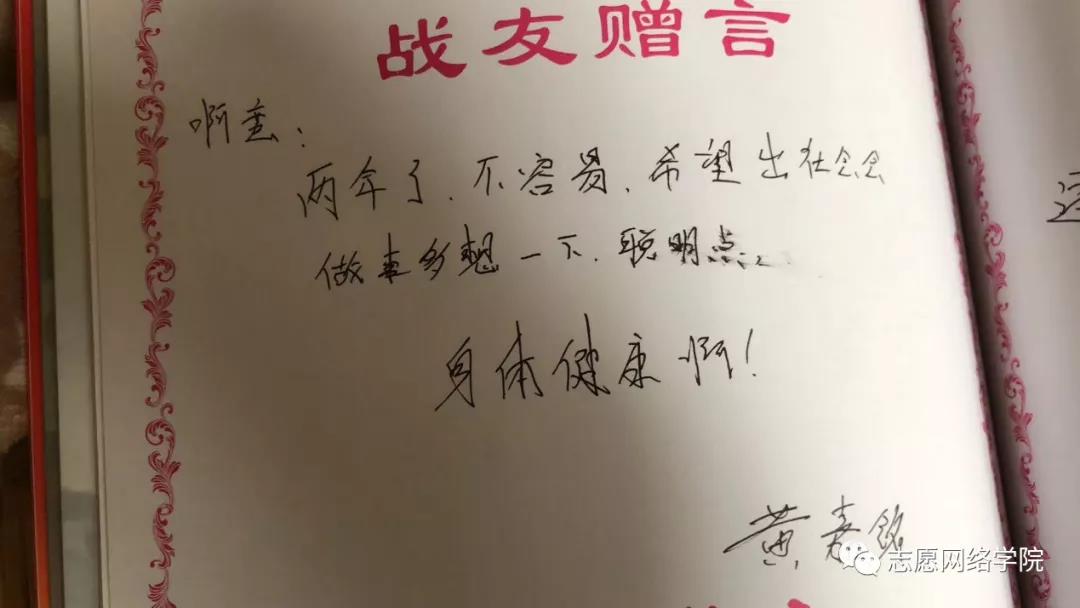 战友赠言
啊
两年了.不容易.希望出社会会
做事多想一下.聪明点
身体健康啊!
黄嘉铭
志愿网络学院